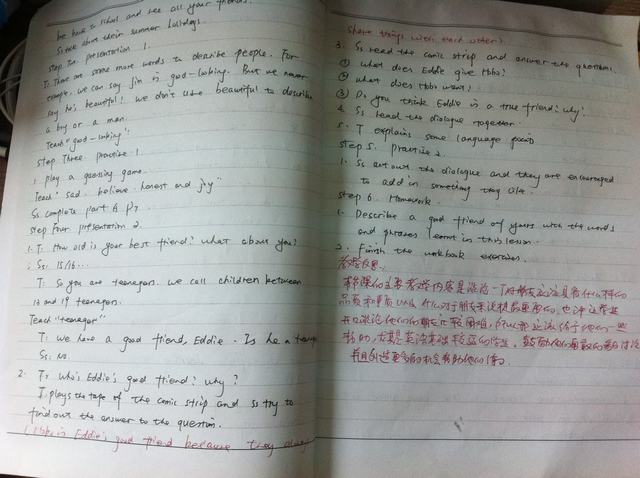 be back to school and see all your friends.
Ss talk about their summer holidays.
Step Two presentation 1.
T: There are some more words to describe people. For
example, we can say Jim is good-looking. But we never
say he's beautiful! we don't use beautiful to describe
a boy or a man.
Teach "good-looking".
Step Three practise 1.
1. play a guessing game.
Teach "sad. believe. honest and joy"
Ss complete part B P7.
Step Four presentation 2.
1. T: How old is your best friend? what about you?
Ss: 15/16...
T: So you are teenagers. we call children between
13 and 19 teenagers.
Teach "teenager"
T: we have a good friend, Eddie. Is he a teenager
Ss: No.
2. T: who's Eddie's good friend? why?
T plays the tape of the comic strip and ss try to
find out the answer to the question.
Hobo is Eddie's good friend because they always
share things with each other.
3. Ss read the comic strip and answer the questions.
① what does Eddie give Hobo?
② what does Hobo want?
③ Do you think Eddie is a true friend? why?
4. Ss read the dialogue together.
5. T explains some language points
Step 5. practise 2.
1. Ss act out the dialogue and they are encouraged
to add in something they like.
Step 6. Homework.
1. Describe a good friend of yours with the words
and phrases learnt in this lesson.
2. Finish the workbook exercises.
教学反思:
本节课的主要教学内容是谈论一下好朋友应该具有什么样的
品质和素质以及什么对于朋友来说是最重要的,
并且创造更多的机会帮助他们